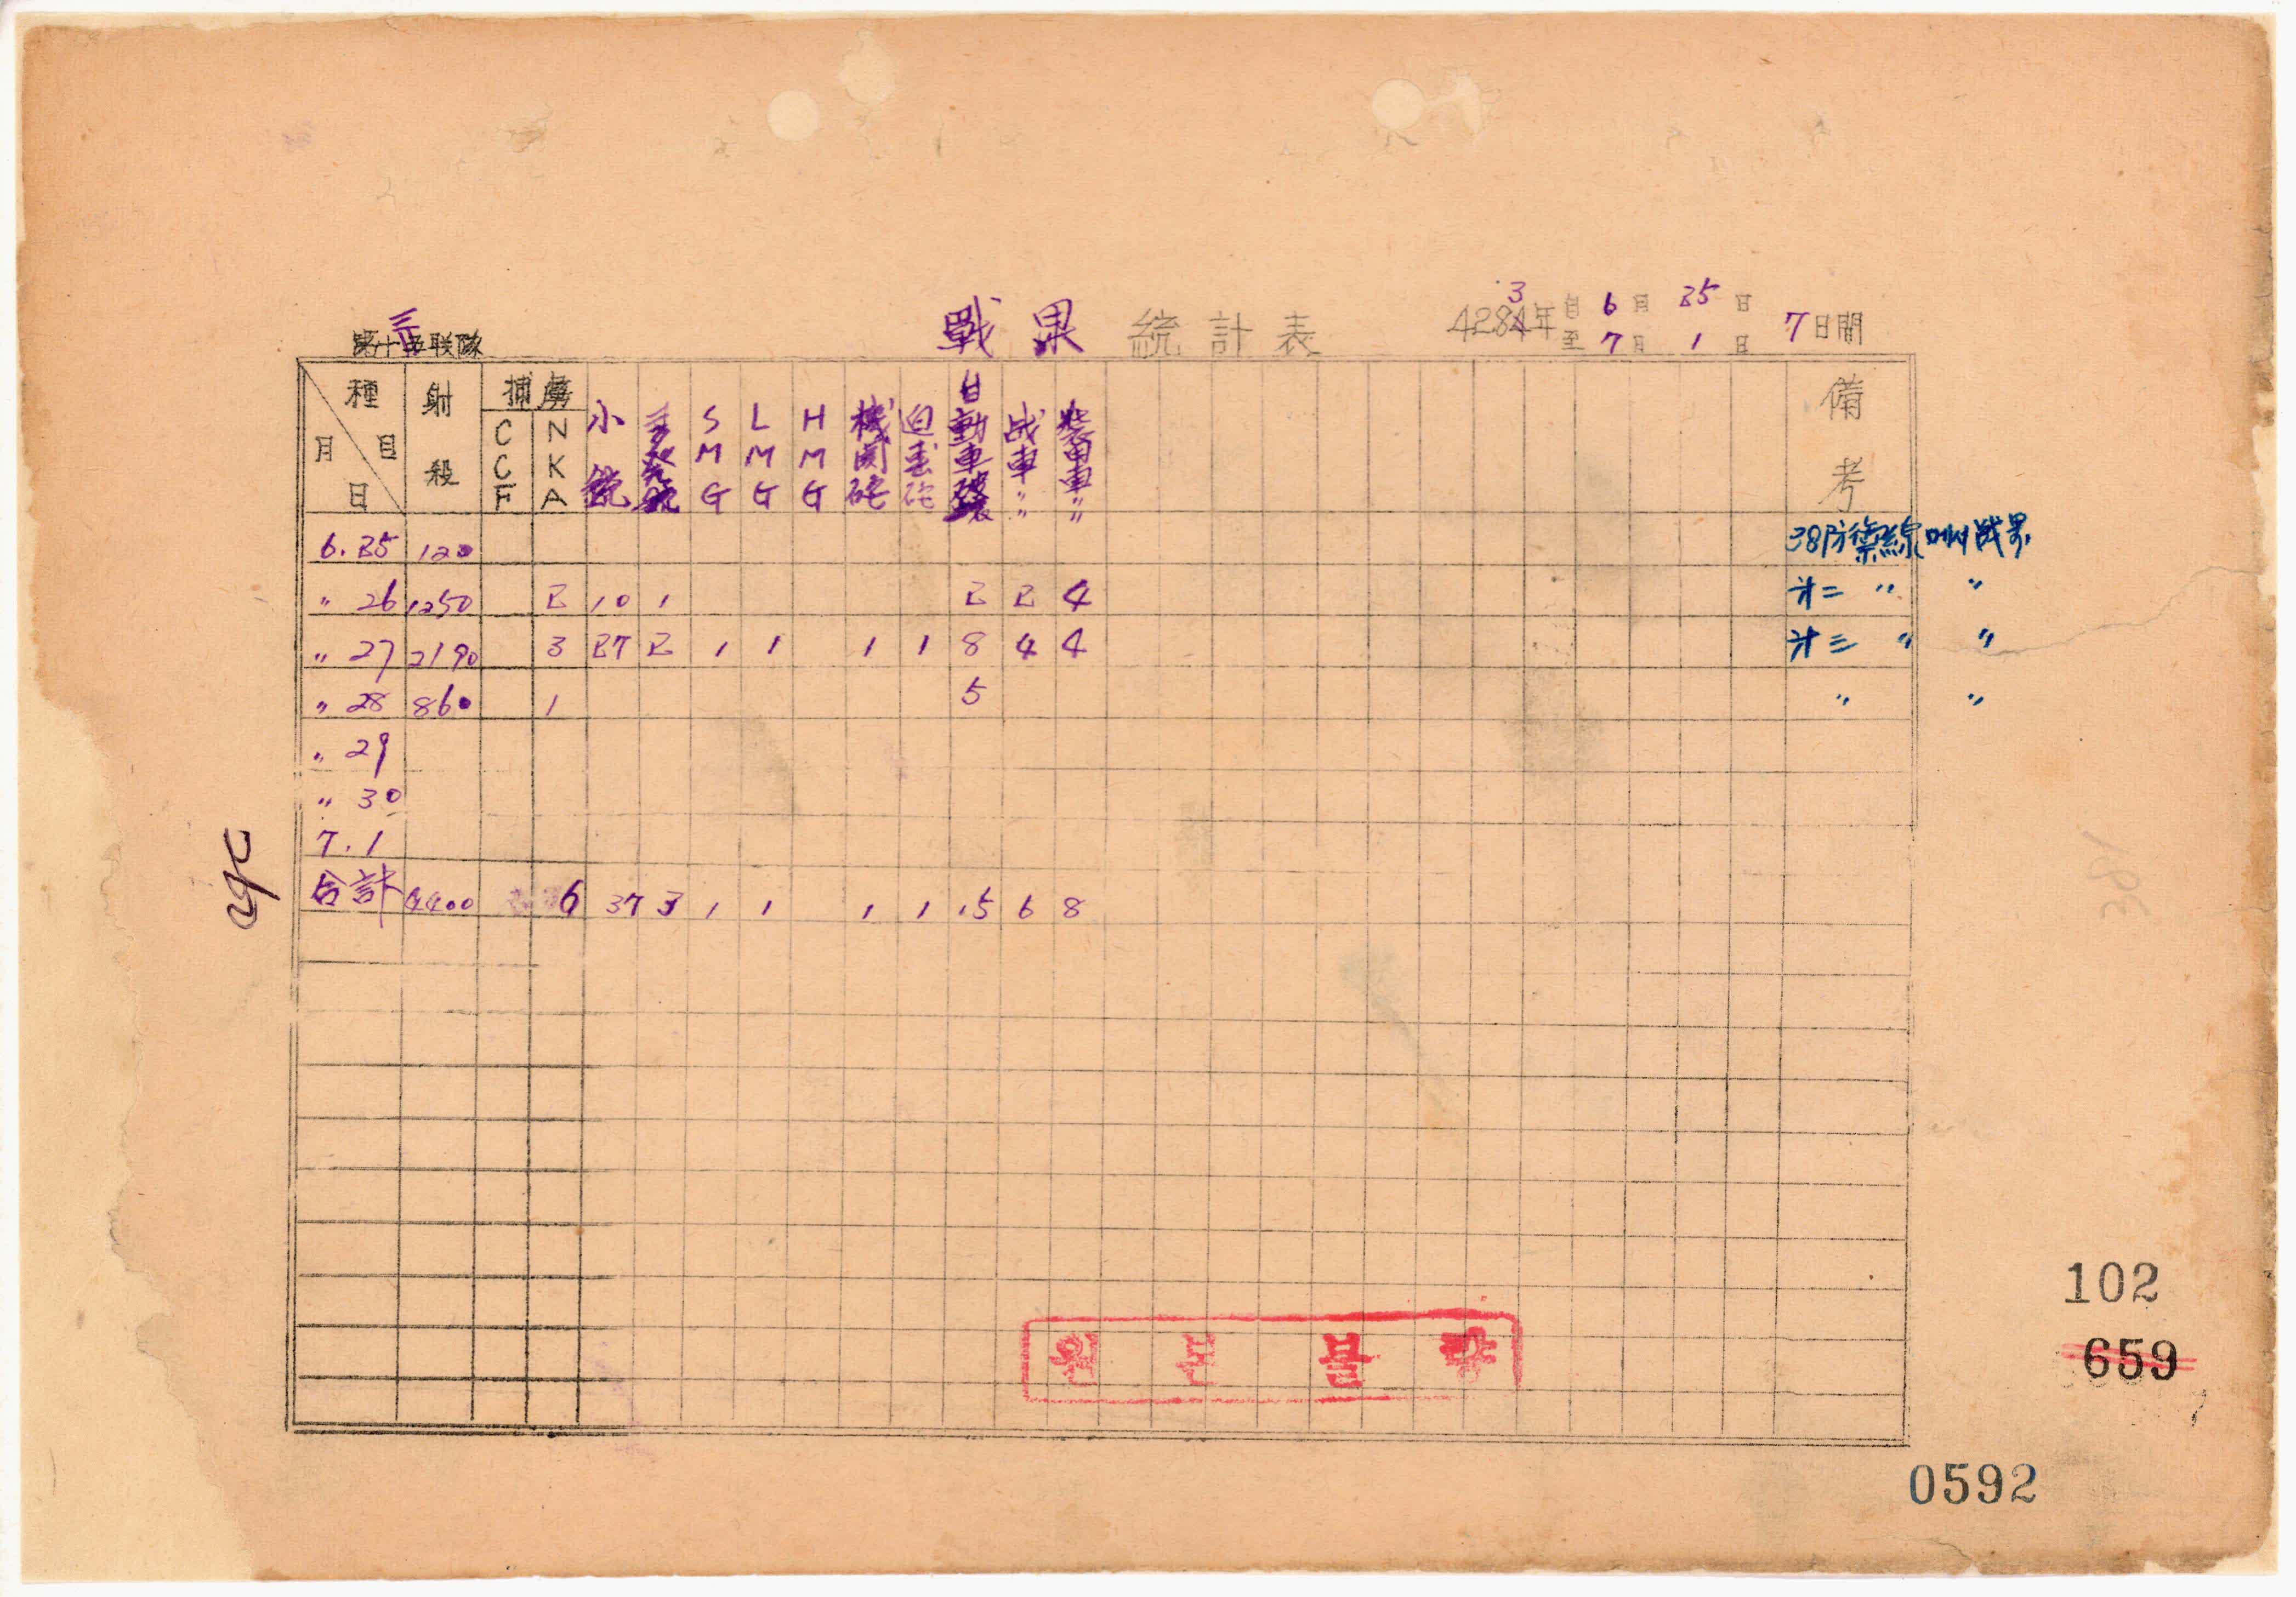 戰果統計表
4283年 自 6月 25日
至 7月 1日
7日間
第十三联隊
種目 月日 射殺 捕虜 CCF NKA 小銃 多発銃 SMG LMG HMG 機関砲 迫击砲 自動車破壞 战車〃 装甲車〃 備考
6.25 120 38防禦線에서 战果
〃 26 1250 2 10 1 2 2 4 才二 〃 〃
〃 27 2190 3 27 2 1 1 1 1 8 4 4 才三 〃 〃
〃 28 860 1 5 〃 〃
〃 29
〃 30
7.1
合計 4400 6 37 3 1 1 1 1 15 6 8
원본불량
102
659
0592